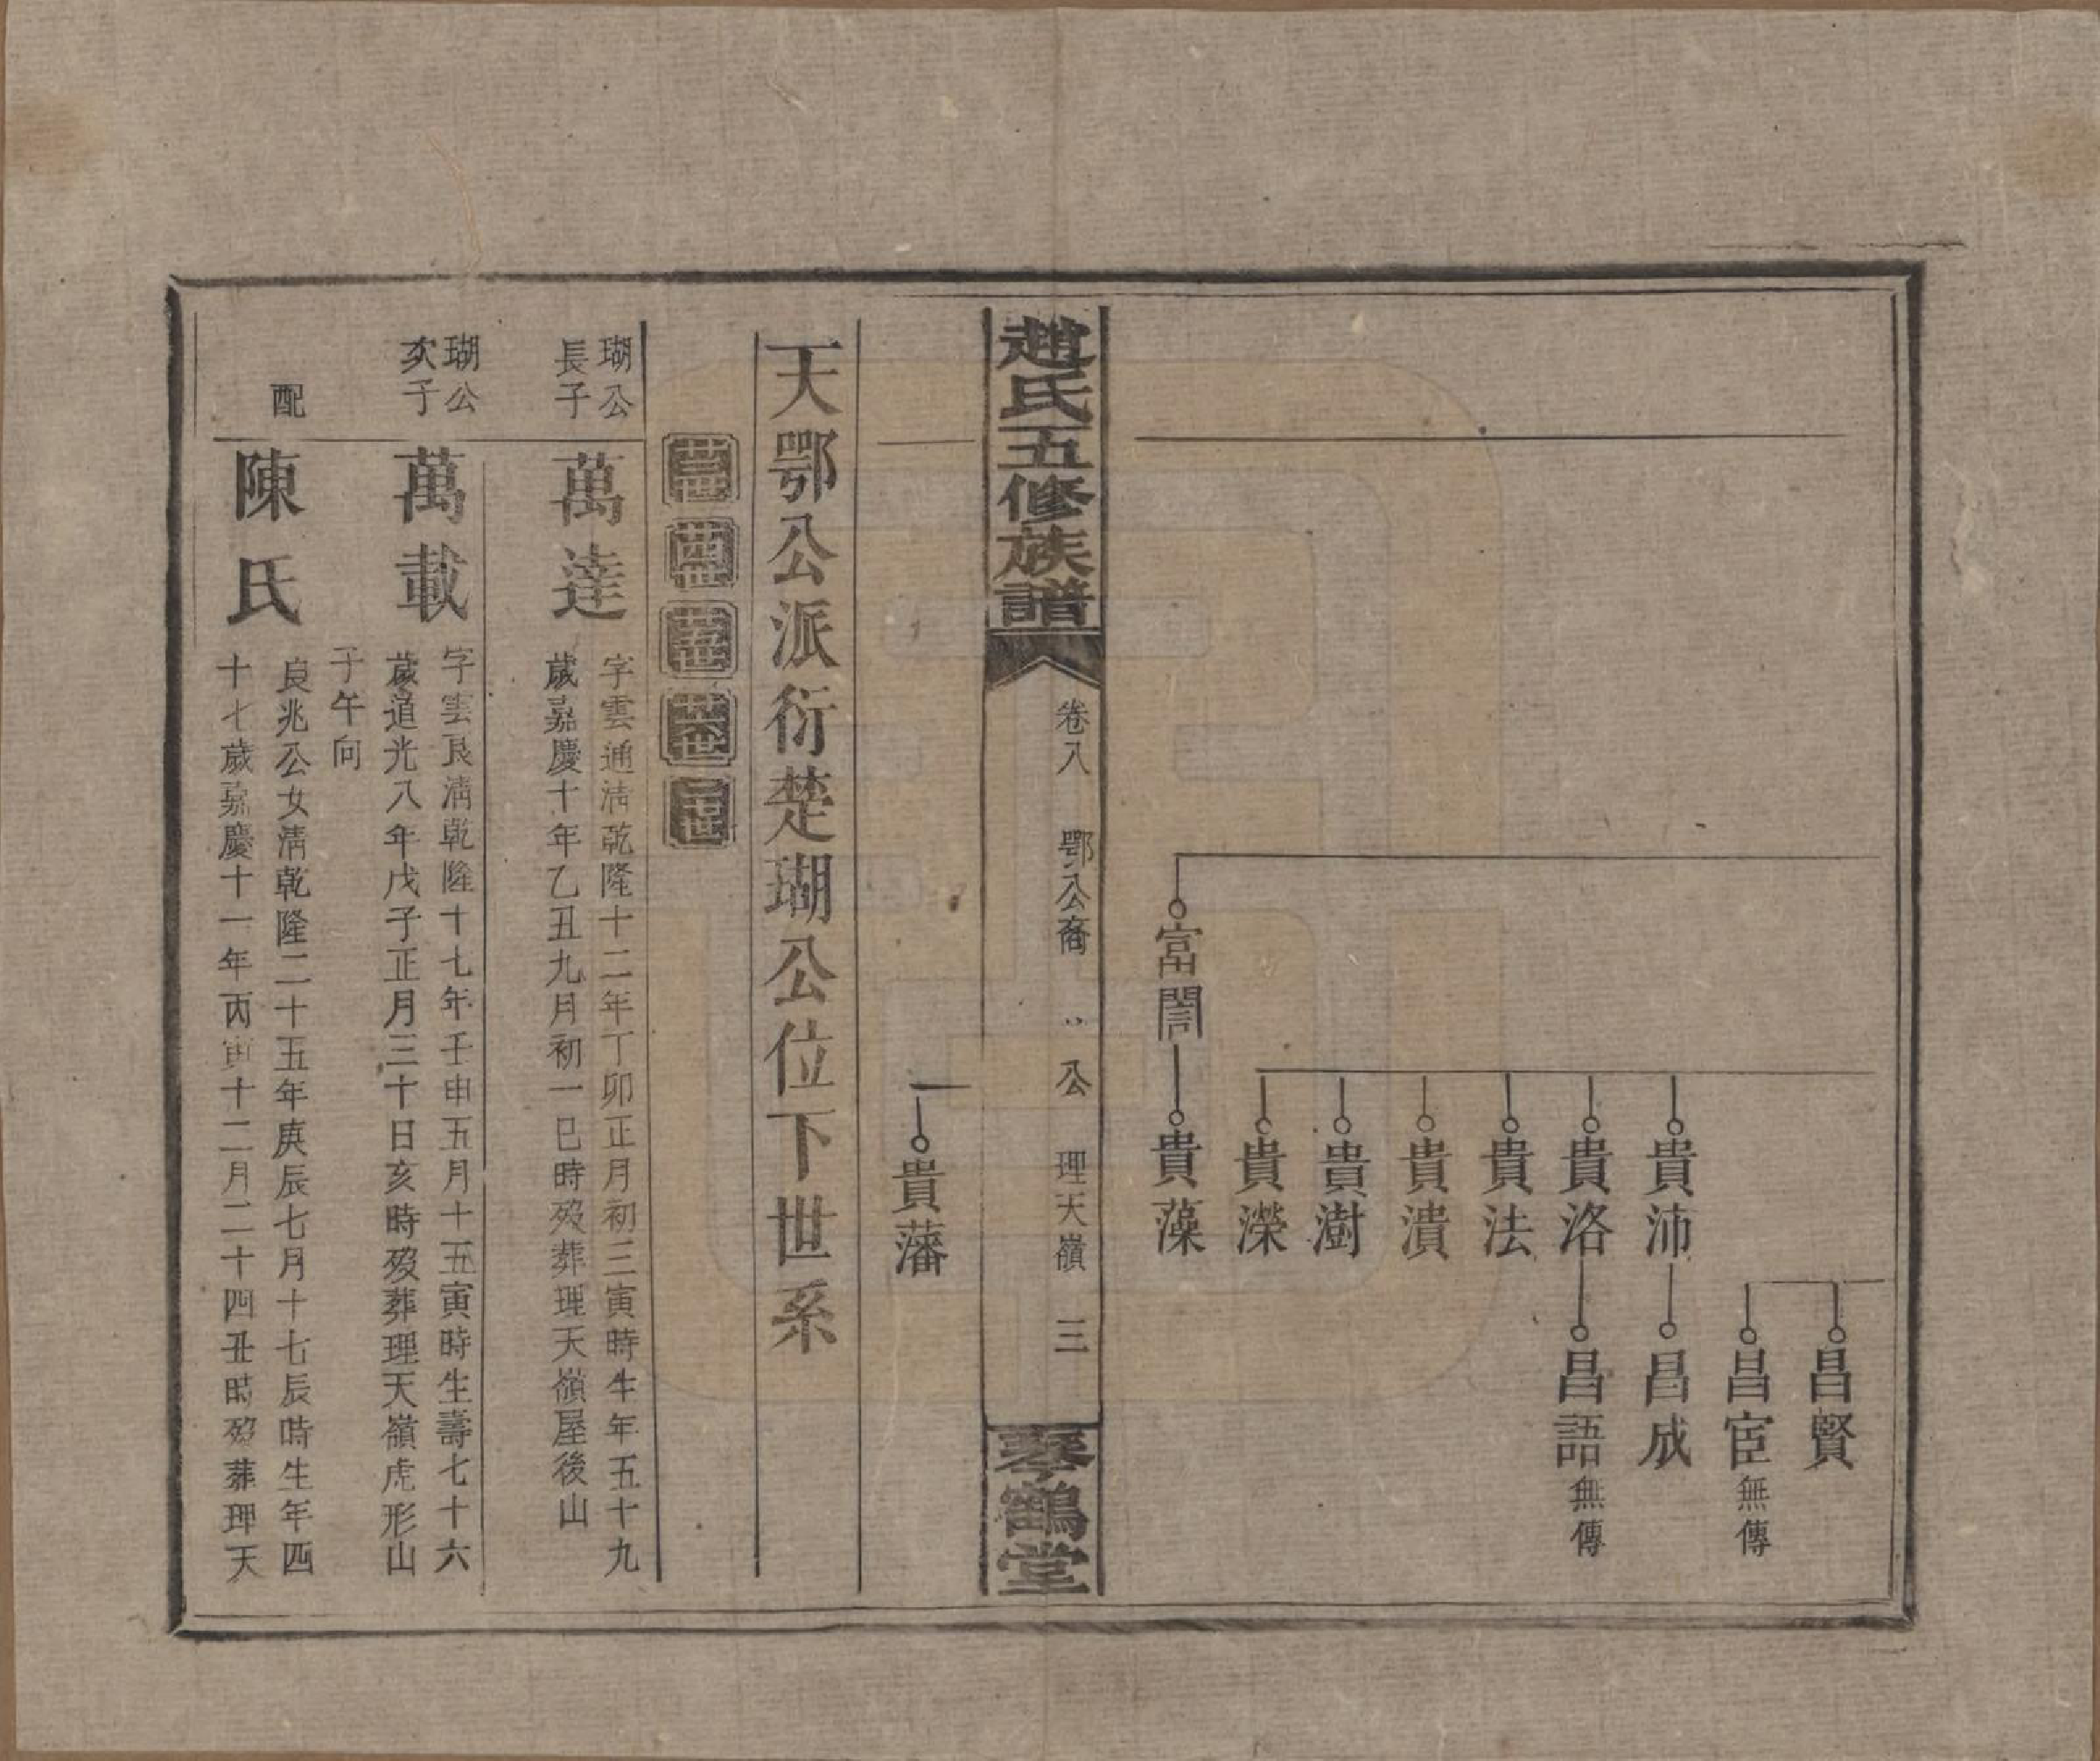 昌賢
昌宦無傳
貴沛 昌成
貴洛 昌語無傳
貴法
貴潰
貴澍
貴濚
富誾 貴藻
趙氏五修族譜
卷八 鄂公裔 公 理天嶺 三
琴鶴堂
貴藩
天鄂公派衍楚瑚公位下世系
瑚公
長子
萬達
字雲通清乾隆十二年丁卯正月初三寅時生年五十九
歲嘉慶十年乙丑九月初一巳時歿葬理天嶺屋後山
瑚公
次子
萬載
字雲艮清乾隆十七年壬申五月十五寅時生壽七十六
歲道光八年戊子正月三十日亥時歿葬理天嶺虎形山
子午向
配
陳氏
良兆公女清乾隆二十五年庚辰七月十七辰時生年四
十七歲嘉慶十一年丙寅十二月二十四丑時歿葬理天